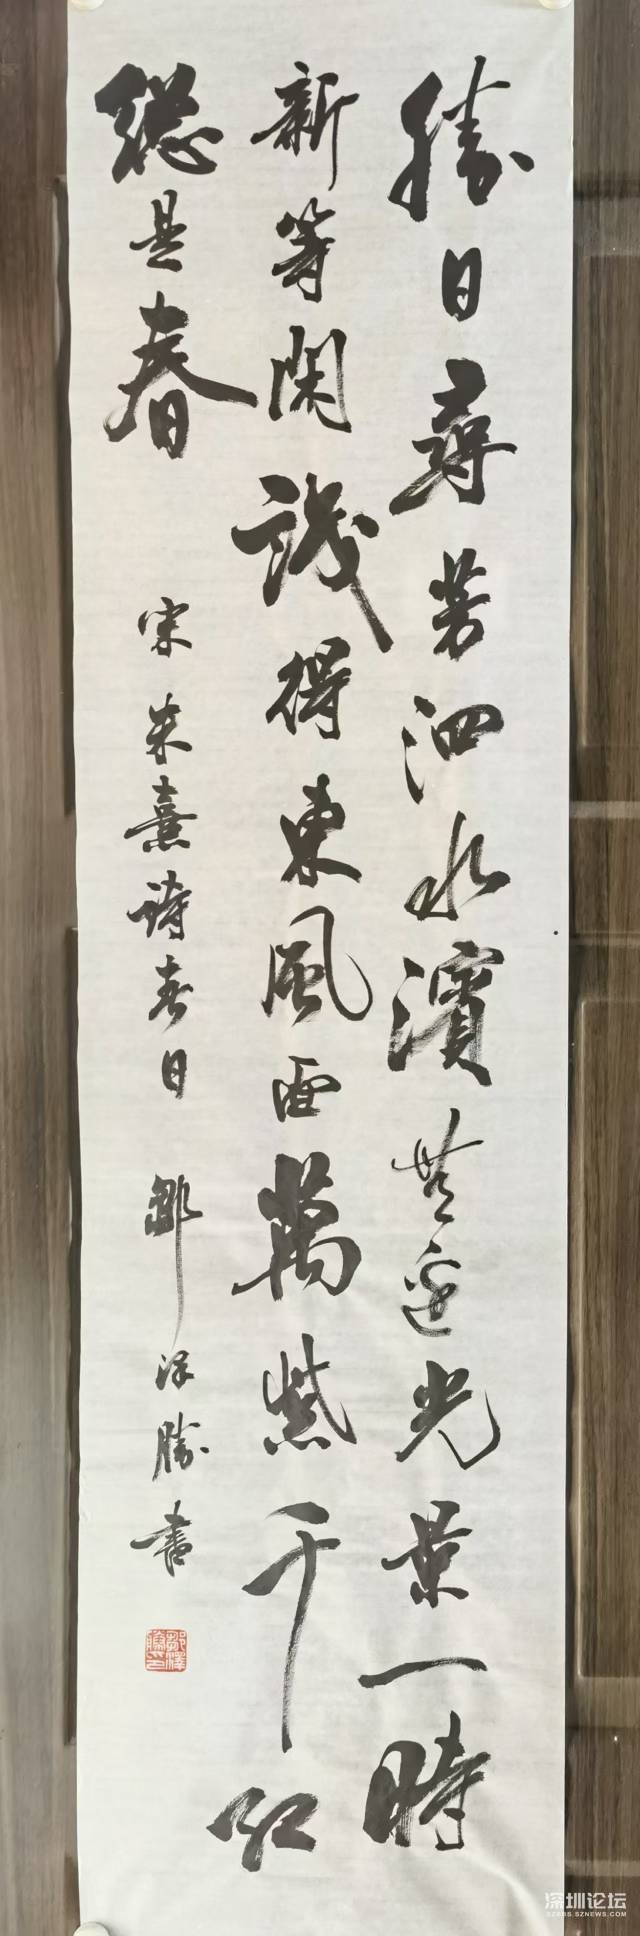 勝日尋芳泗水濱無邊光景一時
新等閑識得東風面萬紫千紅
總是春
宋朱熹詩春日 鄒澤勝書
鄒澤勝印
深圳论坛
SZBBS.SZNEWS.COM